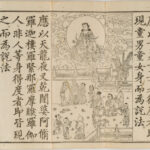 現童男童女身而為說法
應以天龍夜叉乾闥婆阿脩
羅迦樓羅緊那羅摩睺羅伽
人非人等身得度者即皆現
之而為說法